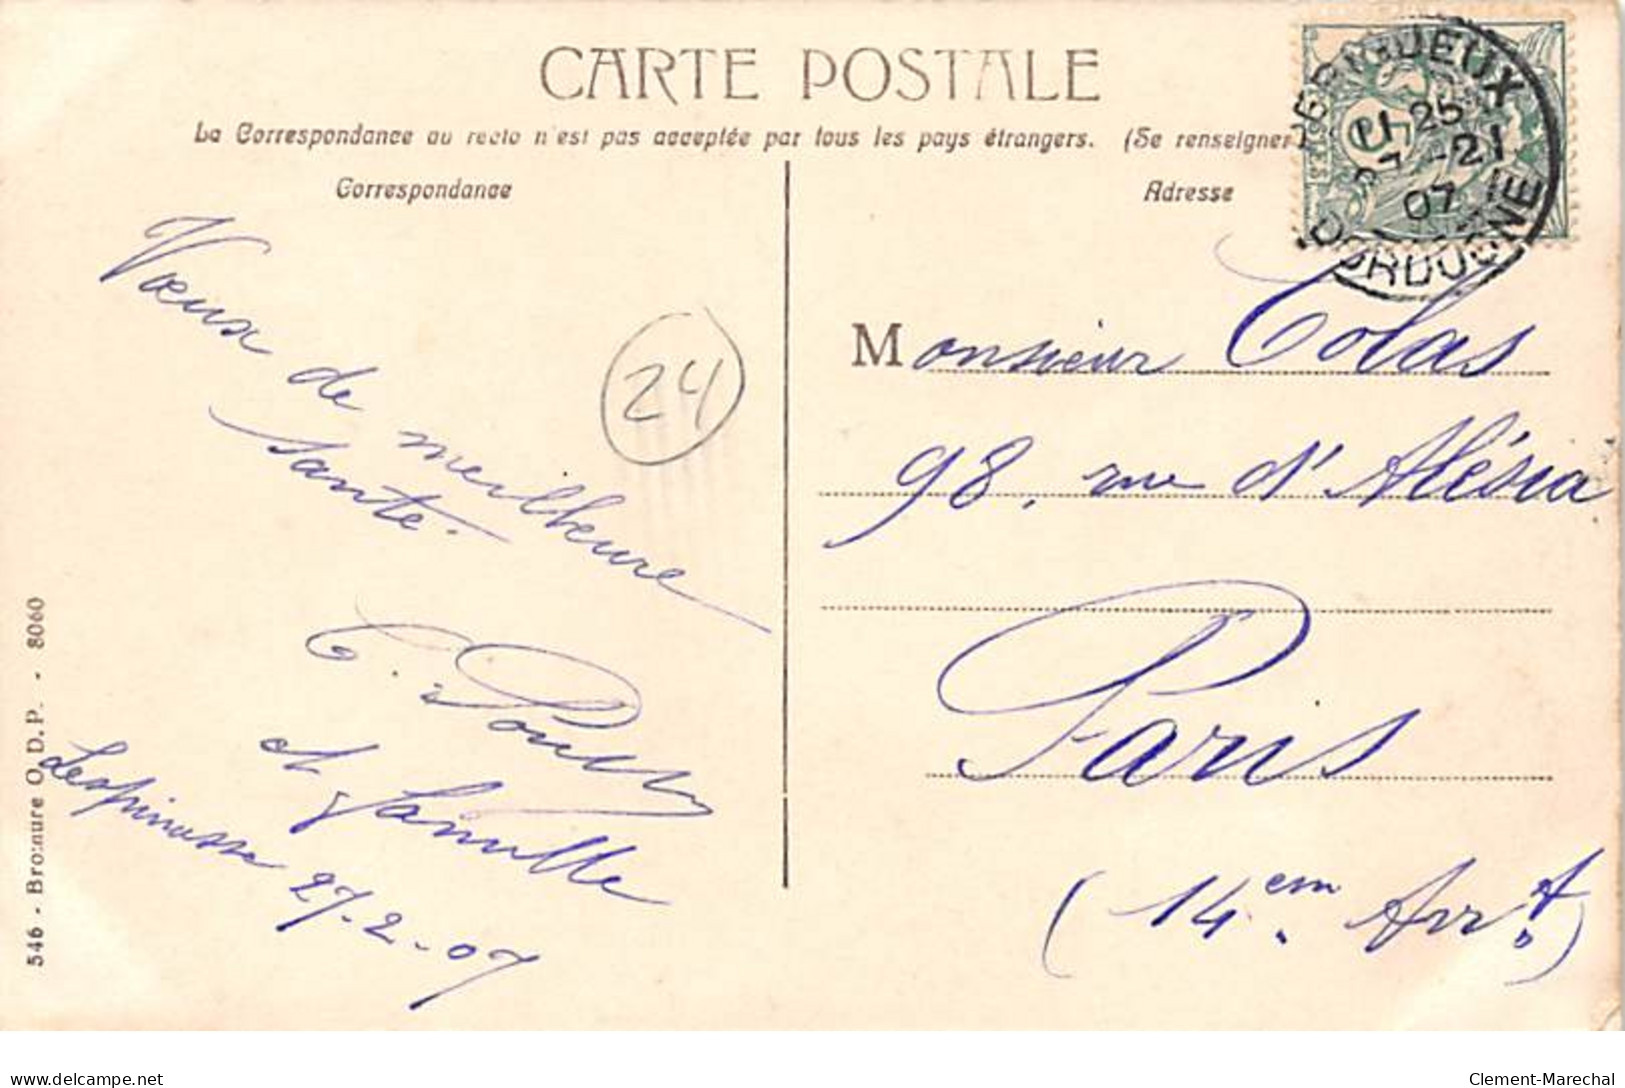 CARTE POSTALE
La Correspondance au recto n'est pas acceptée par tous les pays étrangers. (Se renseigner
Correspondance
Adresse
PERIGUEUX
11 25
7 -2
07
DORDOGNE
Vœux de meilheure
santé.
24
et famille
Lespinasse 27-2-07
Monsieur Colas
98, rue d'Alésia
Paris
(14em. Arrt)
546 - Bromure O.D.P. - 8060
delcampe.net
Clement-Marechal